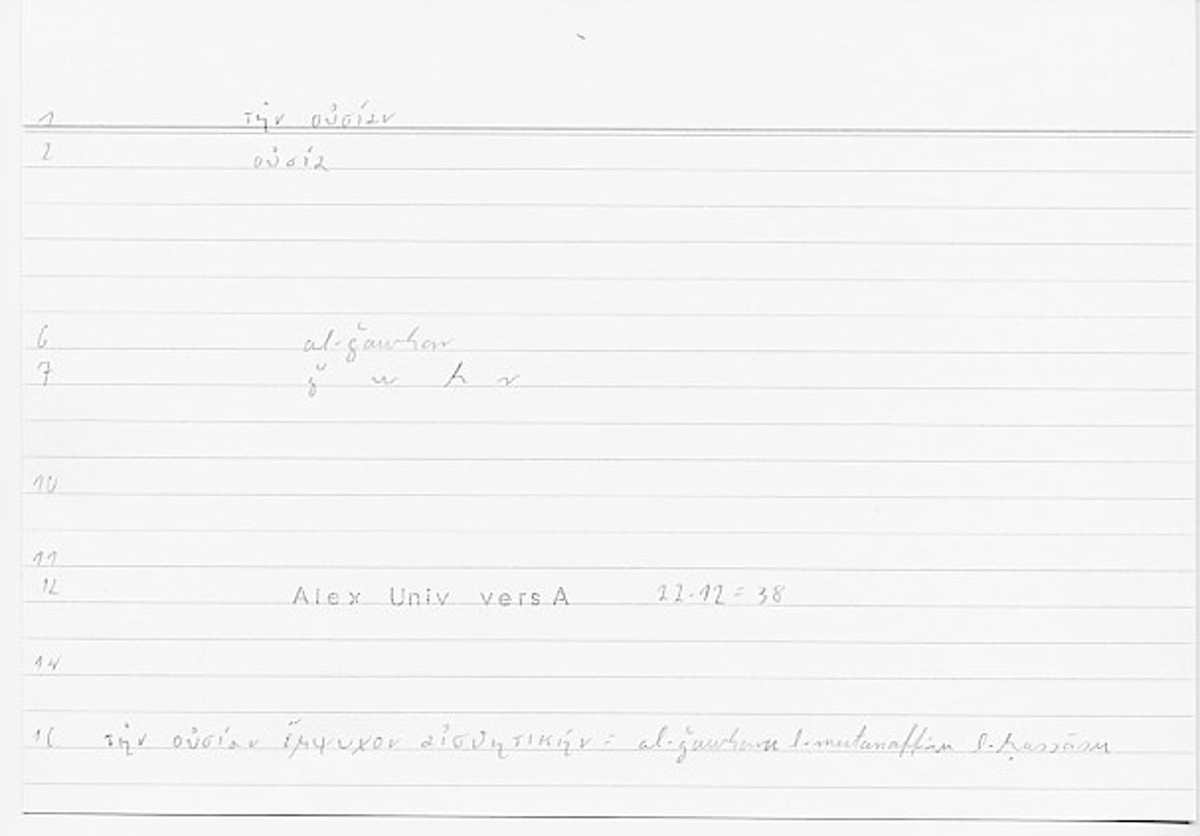 1 τὴν οὐσίαν
2 οὐσία
6 al-ǧawhar
7 ǧ w h r
10
11
12 Alex Univ vers A 22.12 = 38
14
16 τὴν οὐσίαν ἔμψυχον αἰσθητικήν = al-ǧawharu l-mutanaffisu l-ḥassāsu